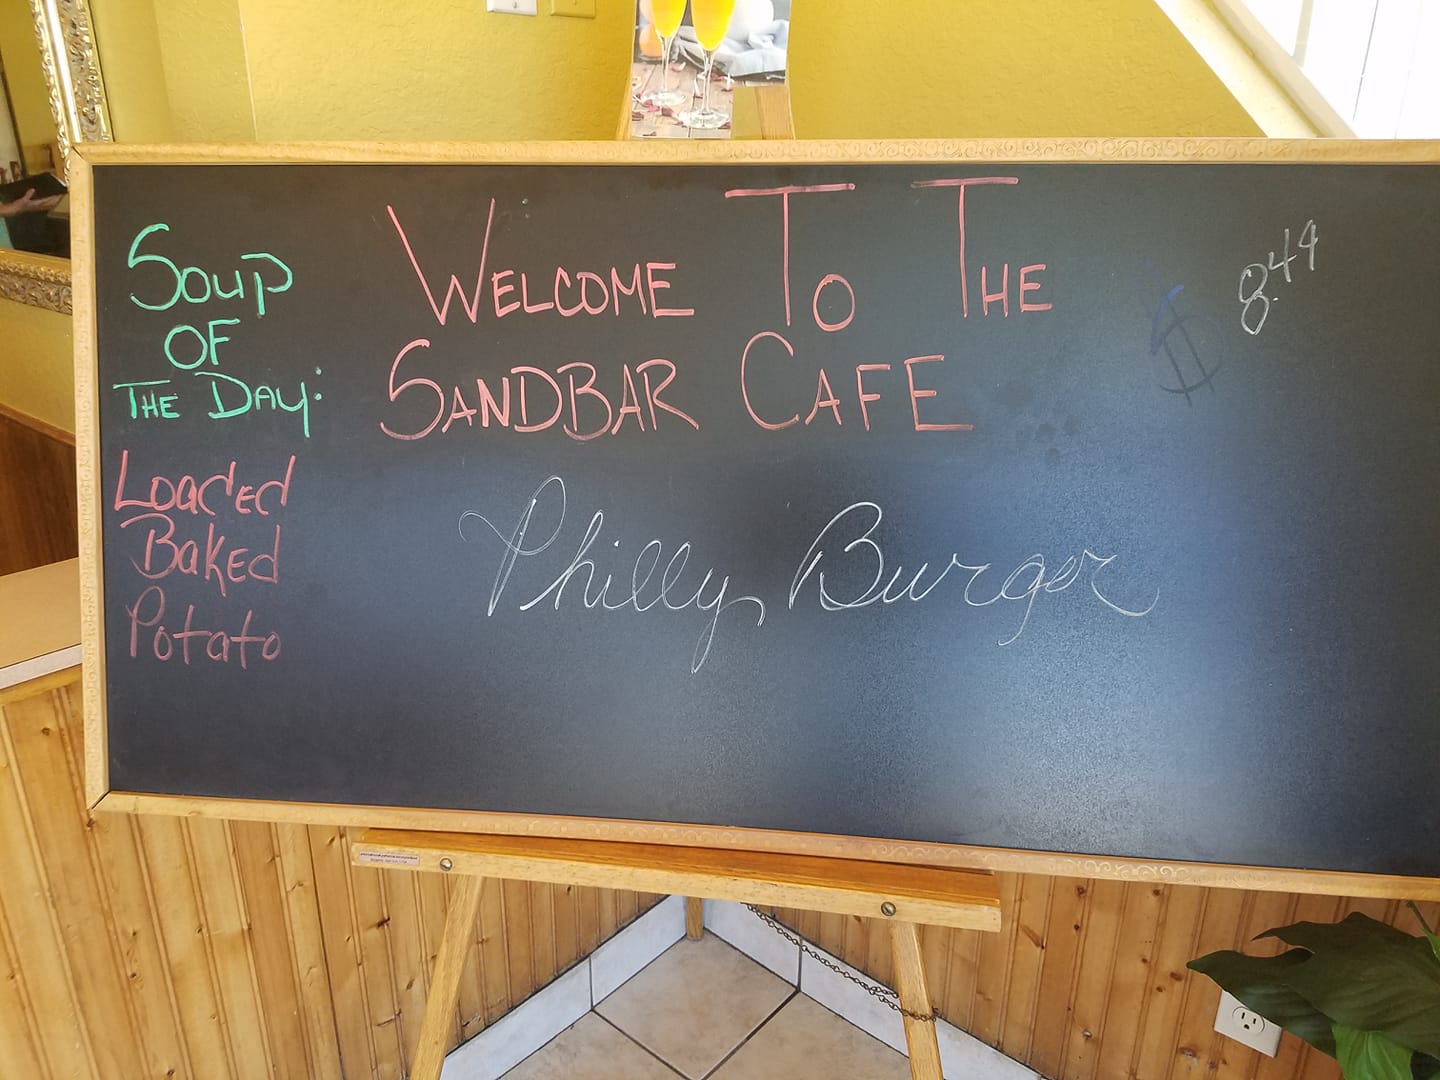 Soup
OF
THE DAY:
Loaded
Baked
Potato
WELCOME TO THE
SANDBAR CAFE
$ 8.44
Philly Burger